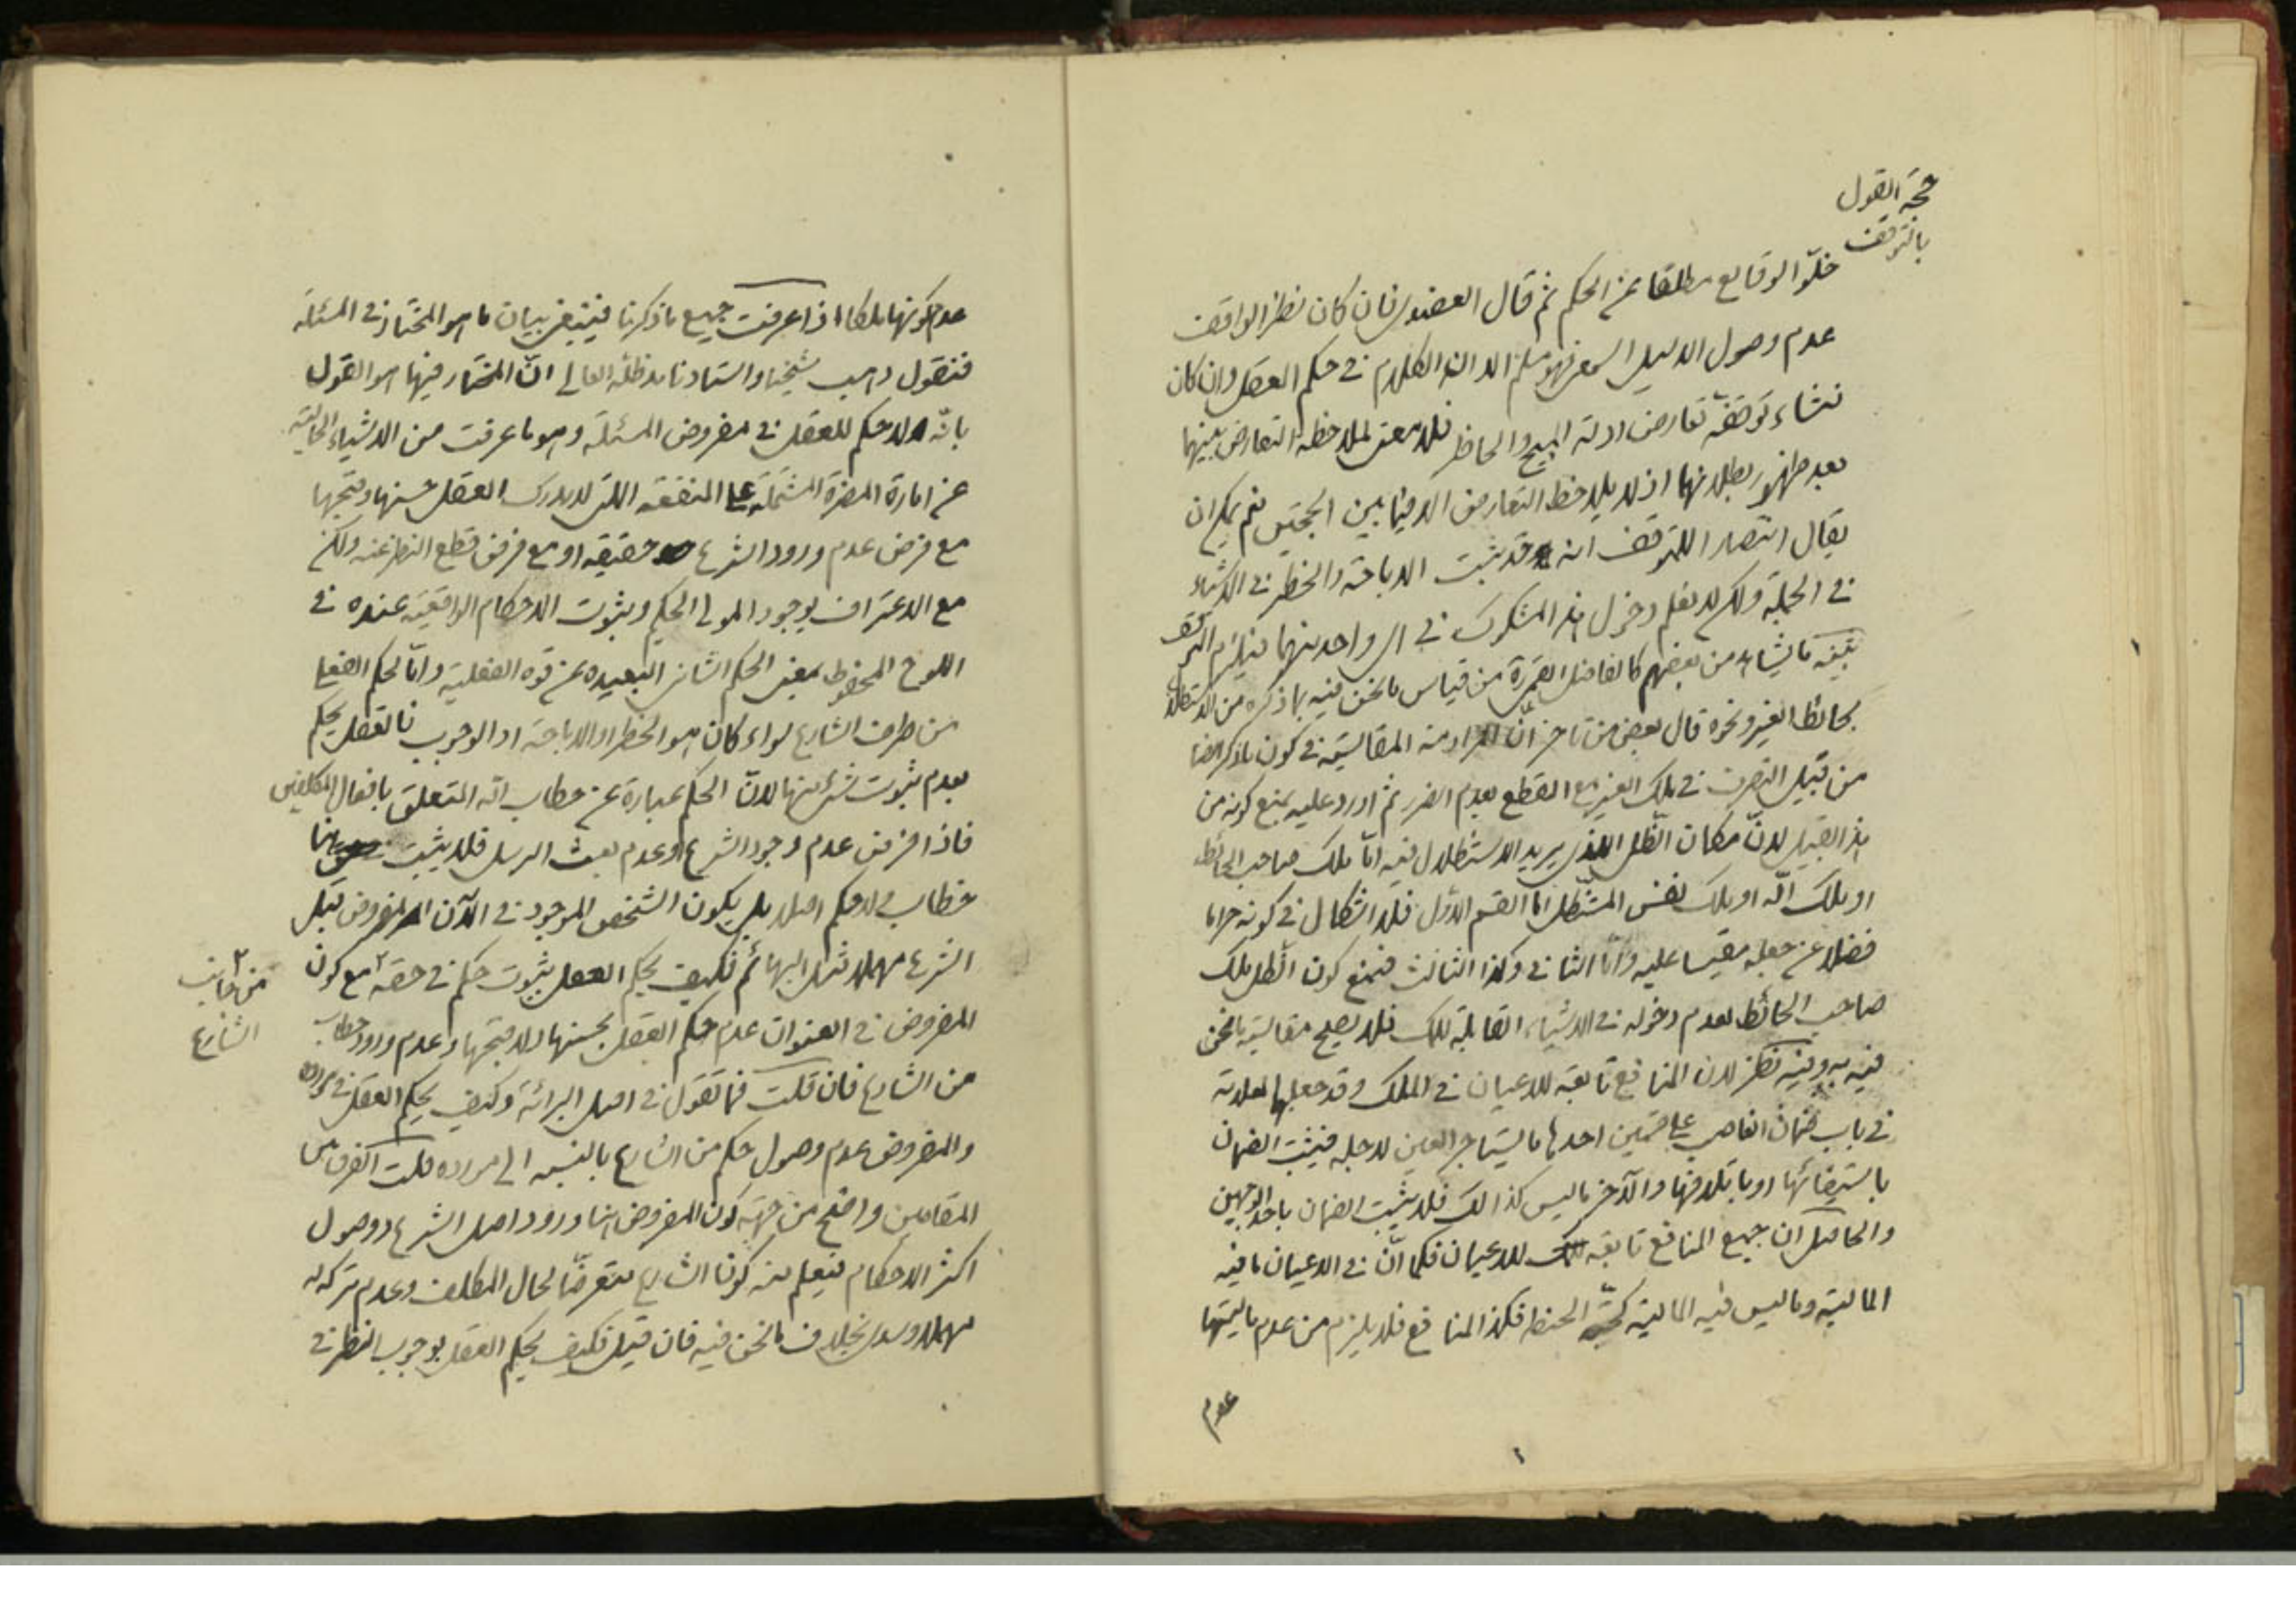 حجة القول
بالتوقف
خلوّ الوقايع مطلقا عن الحكم ثم قال العضدى فان كان نظر الواقف
عدم وصول الدليل السمعى فهو مسلم الا ان الكلام فى حكم العقل وان كان
نشاء توقفه تعارض ادلة المبيح والحاظر فلا معنى لملاحظة التعارض بينهما
بعد ظهور بطلانهما اذ لا يلاحظ التعارض الا فيما بين الحجتين نعم يمكن ان
يقال انتصارا للتوقف انه قد يثبت الاباحة والحظر فى الاشياء
فى الجملة ولكن لا نعلم دخول هذا المشكوك فى اى واحد منهما فيلزم التوقف
تتميم ما يشاهد من بعضهم كالفاضل القمى ره من قياس ما نحن فيه بما ذكره من الاستظلال
بحائط الغير ونحوه قال بعض من تاخر انّ المراد منه المقايسة فى كون ما ذكر ايضا
من قبيل التصرف فى ملك الغير مع القطع بعدم الضرر ثم اورد عليه بمنع كونه من
هذا القبيل لانّ مكان الظل الذى يريد الاستظلال فيه امّا ملك صاحب الحائط
او ملك الله او ملك نفس المستظل امّا القسم الاول فلا اشكال فى كونه حراما
فضلا عن جعله مقيسا عليه وامّا الثانى وكذا الثالث فنمنع كون الظل ملك
صاحب الحائط لعدم دخوله فى الاشياء القابلة للملك فلا يصلح مقايسة ما نحن
فيه به وفيه نظر لان المنافع تابعة للاعيان فى الملك وقد جعلها العلامة
فى باب ضمان الغاصب على قسمين احدها ما يستاجر العين لاجله فيثبت الضمان
باستيفائها او باتلافها والآخر ما ليس كذالك فلا يثبت الضمان باحد الوجهين
والحاصل ان جميع المنافع تابعة للاعيان فكما انّ فى الاعيان ما فيه
المالية وما ليس فيه المالية كحبّة الحنطة فكذا المنافع فلا يلزم من عدم ماليتها
عدم
عدم كونها ملكا اذا عرفت جميع ما ذكرنا فينبغى بيان ما هو المختار فى المسئلة
فنقول ذهب شيخنا واستادنا مد ظله العالى انّ المختار فيها هو القول
بانّه لا حكم للعقل فى مفروض المسئلة وهو ما عرفت من الاشياء الخالية
عن امارة المضرة المشتملة على المنفعة اللتى لا يدرك العقل حسنها وقبحها
مع فرض عدم ورود الشرع حقيقة او مع فرض قطع النظر عنه ولكن
مع الاعتراف بوجود المولى الحكيم وبثبوت الاحكام الواقعية عنده فى
اللوح المحفوظ بمعنى الحكم الشانى البعيدة عن قوة الفعلية وامّا الحكم الفعلى
من طرف الشارع سواء كان هو الحظر او الاباحة او الوجوب فالعقل يحكم
بعدم ثبوت شئ منها لانّ الحكم عبارة عن خطاب الله المتعلق بافعال المكلفين
فاذا فرض عدم وجود الشرع وعدم بعث الرسل فلا يثبت هنا
خطاب ولا حكم اصلا بل يكون الشخص الموجود فى الآن المفروض قبل
الشرع مهملا مثل البهائم فكيف يحكم العقل بثبوت حكم فى حقه ٢ مع كون
٢ من جانب
الشارع
المفروض فى العنوان عدم حكم العقل بحسنها ولا قبحها وعدم ورود خطاب
من الشارع فان قلت فما تقول فى اصل البرائة وكيف يحكم العقل فى موارده
والمفروض عدم وصول حكم من الشارع بالنسبة الى موارده قلت الفرق بين
المقامين واضح من جهة كون المفروض هنا ورود اصل الشرع ووصول
اكثر الاحكام فيعلم منه كون الشارع متعرضا لحال المكلف وعدم تركه له
مهملا وسدى بخلاف ما نحن فيه فان قيل فكيف يحكم العقل بوجوب النظر فى